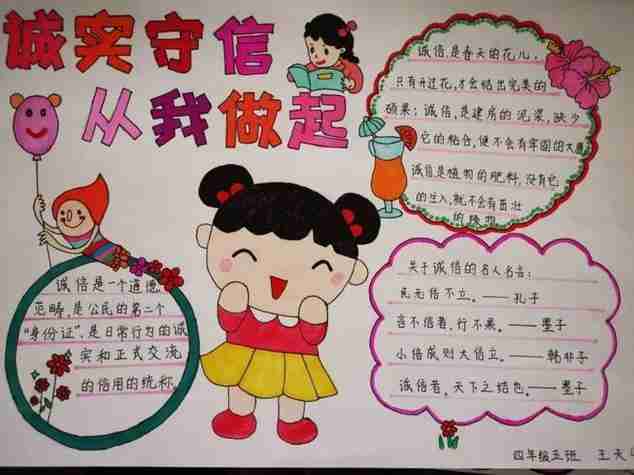 诚实守信
从我做起
诚信,是春天的花儿,
只有开过花,才会结出完美的
硕果;诚信,是建房的泥浆,缺少
它的粘合,便不会有牢固的大厦
诚信是植物的肥料,没有它
的注入,就不会有茁壮
的植物
诚信是一个道德
范畴,是公民的第二个
“身份证”,是日常行为的诚
实和正式交流
的信用的统称.
关于诚信的名人名言:
民无信不立。——孔子
言不信者,行不果。——墨子
小信成则大信立。——韩非子
诚信者,天下之结也。——墨子
四年级五班 王天